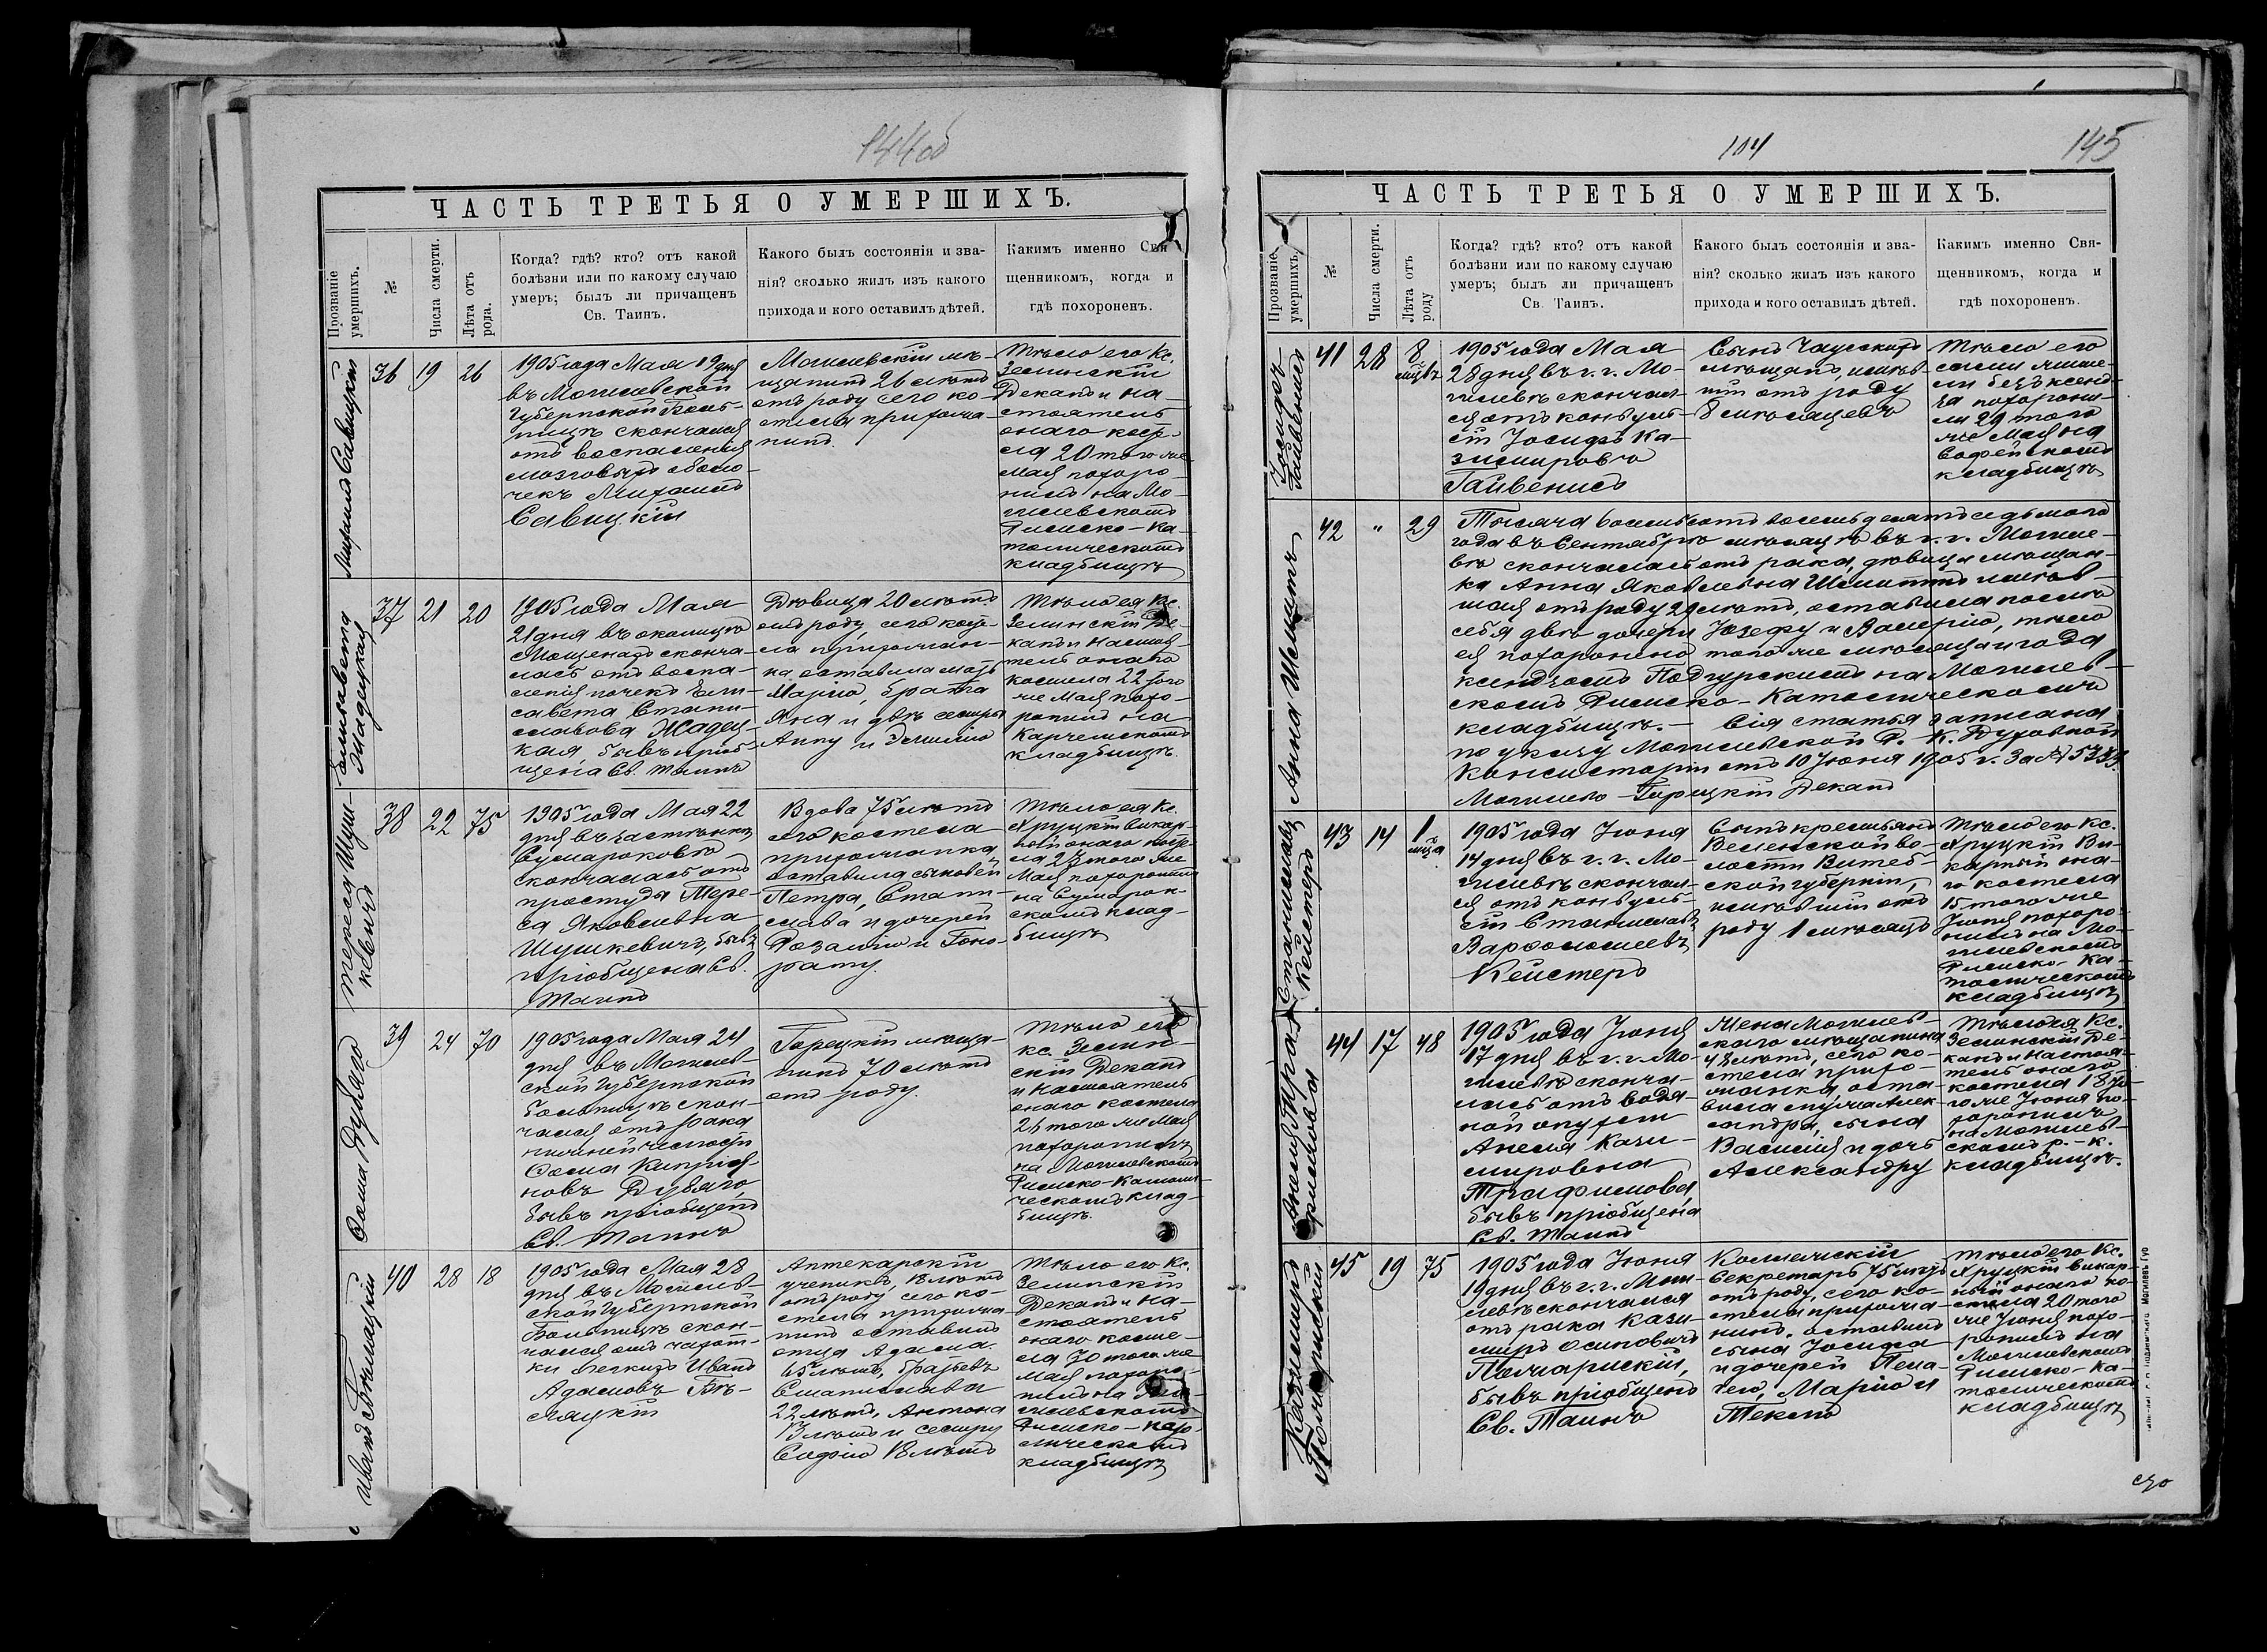 144об
ЧАСТЬ ТРЕТЬЯ О УМЕРШИХЪ.
Прозваніе умершихъ.
№
Числа смерти.
Лѣта отъ рода.
Когда? гдѣ? кто? отъ какой
болѣзни или по какому случаю
умеръ; былъ ли причащенъ
Св. Таинъ.
Какого былъ состоянія и зва-
нія? сколько жилъ изъ какого
прихода и кого оставилъ дѣтей.
Какимъ именно Свя
щенникомъ, когда и
гдѣ похороненъ.
Михаилъ Савицкій
36
19
26
1905 года Мая 19 дня
въ Могилевской
Губернской Боль-
ницѣ скончался
отъ воспаленія
мозговыхъ оболо-
чекъ Михаилъ
Савицкій
Могилевскій мѣ-
щанинъ 26 лѣтъ
отъ роду сего ко-
стела прихожа-
нинъ.
Тѣло его Кс.
Зелинскій
Деканъ и На-
стоятель
онаго косте-
ла 20 того же
Мая похоро-
нилъ на Мо-
гилевскомъ
Римско-Ка-
толическомъ
кладбищѣ
Елисавета
Жадецкая
37
21
20
1905 года Мая
21 дня въ околицѣ
Мощенахъ сконча-
лась отъ воспа-
ленія почекъ Ели-
савета Стани-
славова Жадец-
кая, бывъ пріоб-
щена Св. Таинъ
Дѣвица 20 лѣтъ
отъ роду, сего косте-
ла прихожан-
ка оставила мать
Марію, брата
Яна и двѣ сестры
Анну и Эмилію
Тѣло ея Кс.
Зелинскій Де-
канъ и Настоя-
тель онаго
костела 22 того
же Мая похо-
ронилъ на
Карчемскомъ
кладбищѣ.
Тереса Шуш-
кевичъ
38
22
75
1905 года Мая 22
дня въ застѣнкѣ
Сумароковѣ
скончалась отъ
простуды Тере-
са Яковлевна
Шушкевичъ, бывъ
пріобщена Св.
Таинъ
Вдова 75 лѣтъ
сего костела
прихожанка
оставила сыновей
Петра, Стани-
слава и дочерей
Розалію и Гоно-
рату.
Тѣло ея Кс.
Хруцкій викар-
ный онаго косте-
ла 23 того же
Мая похоронилъ
на Сумарок-
скомъ клад-
бищѣ
Фома Дубяго
39
24
70
1905 года Мая 24
дня въ Могилев-
ской Губернской
больницѣ скон-
чался отъ рака
нижней челюсти
Фома Кипріа-
новъ Дубяго,
бывъ пріобщенъ
Св. Таинъ
Горецкій мѣща-
нинъ 70 лѣтъ
отъ роду.
Тѣло его
кс. Зелин-
скій Деканъ
и Настоятель
онаго костела
26 того же Мая
похоронилъ
на Могилевскомъ
Римско-Католи-
ческомъ клад-
бищѣ.
Иванъ Бѣляцкій
40
28
18
1905 года Мая 28
дня въ Могилев-
ской Губернской
Больницѣ скон-
чался отъ чахот-
ки легкихъ Иванъ
Адамовъ Бѣ-
ляцкій
Аптекарскій
ученикъ, 18 лѣтъ
отъ роду сего ко-
стела прихожа-
нинъ оставилъ
отца Адама
65 лѣтъ, братьевъ
Станислава
22 лѣтъ, Антона
13 лѣтъ и сестру
Софію 18 лѣтъ
Тѣло его Кс.
Зелинскій
Деканъ и На-
стоятель
онаго косте-
ла 30 того же
Мая похоро-
нилъ на Мо-
гилевскомъ
Римско-Като-
лическомъ
кладбищѣ
104
145
ЧАСТЬ ТРЕТЬЯ О УМЕРШИХЪ.
Прозваніе умершихъ.
№
Числа смерти.
Лѣта отъ роду
Когда? гдѣ? кто? отъ какой
болѣзни или по какому случаю
умеръ; былъ ли причащенъ
Св. Таинъ.
Какого былъ состоянія и зва-
нія? сколько жилъ изъ какого
прихода и кого оставилъ дѣтей.
Какимъ именно Свя-
щенникомъ, когда и
гдѣ похороненъ.
Іосифъ
Гайвенисъ
41
28
8
мѣсяц.
1905 года Мая
28 дня въ г. г. Мо-
гилевѣ скончал-
ся отъ конвуль-
сіи Іосифъ Ка-
зимировъ
Гайвенисъ
Сынъ Чаусскихъ
мѣщанъ, имѣв-
шій отъ роду
8 мѣсяцевъ
Тѣло его
сами лише-
ли безъ ксенд-
за похорони-
ли 29 того
же Мая на
кладбищѣ
Анна Шемитъ
42
"
29
Тысяча восемьсотъ восемьдесятъ седьмого
года въ Сентябрѣ мѣсяцѣ въ г. г. Могиле-
вѣ скончалась отъ рака, дѣвица мѣщан-
ка Анна Яковлевна Шемитъ имѣв-
шая отъ роду 29 лѣтъ, оставила послѣ
себя двѣ дочери Юзефу и Валерію, тѣло
ея похоронено того же мѣсяца и года
ксендзомъ Подгурскимъ на Могилев-
скомъ Римско-Католическомъ
кладбищѣ.- Сія статья записана
по указу Могилевской Р. К. Духовной
Консисторіи отъ 10 Іюня 1905 г. за №
Могилево-Горецкій Деканъ
Станиславъ
Кейстеръ
43
14
1
мѣся
1905 года Іюня
14 дня въ г. г. Мо-
гилевѣ скончал-
ся отъ конвуль-
сіи Станиславъ
Варфоломеевъ
Кейстеръ
Сынъ крестьянъ
Веленской во-
лости Витеб-
ской губерніи,
имѣвшій отъ
роду 1 мѣсяцъ
Тѣло его Кс.
Хруцкій Ви-
карный она-
го костела
15 того же
Іюня похоро-
нилъ на Мо-
гилевскомъ
Римско-Ка-
толическомъ
кладбищѣ
Анеля Тра-
фимова
44
17
48
1905 года Іюня
17 дня въ г. г. Мо-
гилевѣ сконча-
лась отъ водя-
ной опухоли
Анеля Кази-
мировна
Трафимова,
бывъ пріобщена
Св. Таинъ
Жена Могилев-
скаго мѣщанина
48 лѣтъ, сего ко-
стела прихо-
жанка, оста-
вила мужа Алек-
сандра, сына
Василія и дочь
Александру
Тѣло ея Кс.
Зелинскій Де-
канъ и Настоя-
тель онаго
костела 18 то-
го же Іюня по-
хоронилъ
на Могилев-
скомъ р.-к.
кладбищѣ.
Казимиръ
Помарнскій
45
19
75
1905 года Іюня
19 дня въ г. г. Моги-
левѣ скончался
отъ рака Кази-
миръ Осиповичъ
Помарнскій,
бывъ пріобщенъ
Св. Таинъ
Коллежскій
Секретарь 75 лѣтъ
отъ роду, сего ко-
стела прихожа-
нинъ. оставилъ
сына Іосифа
и дочерей Пела-
гею, Марію и
Теклю
Тѣло его Кс.
Хруцкій викар-
ный онаго ко-
стела 20 того
же Іюня похо-
ронилъ на
Могилевскомъ
Римско-Ка-
толическомъ
кладбищѣ